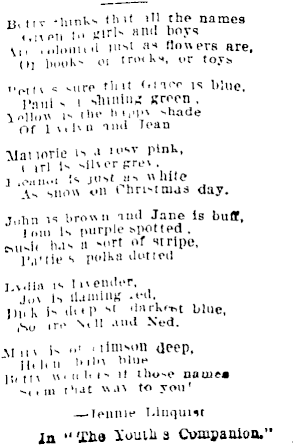 Betty thinks that all the names
Given to girls and boys
Are coloured just as flowers are,
Or books or frocks, or toys
Betty's sure that Grace is blue,
Paul's a shining green,
Yellow is the happy shade
Of Evelyn and Jean
Marjorie is a rosy pink,
Carl is silver grey,
Eleanor is just as white
As snow on Christmas day.
John is brown and Jane is buff,
Tom is purple spotted,
Susie has a sort of stripe,
Pattie's polka dotted
Lydia is lavender,
Joy is flaming red,
Dick is deep st darkest blue,
So are Nell and Ned.
Mary is of crimson deep,
Helen baby blue
Betty wonders if those names
Seem that way to you!
—Jennie Linquist
In "The Youth's Companion."